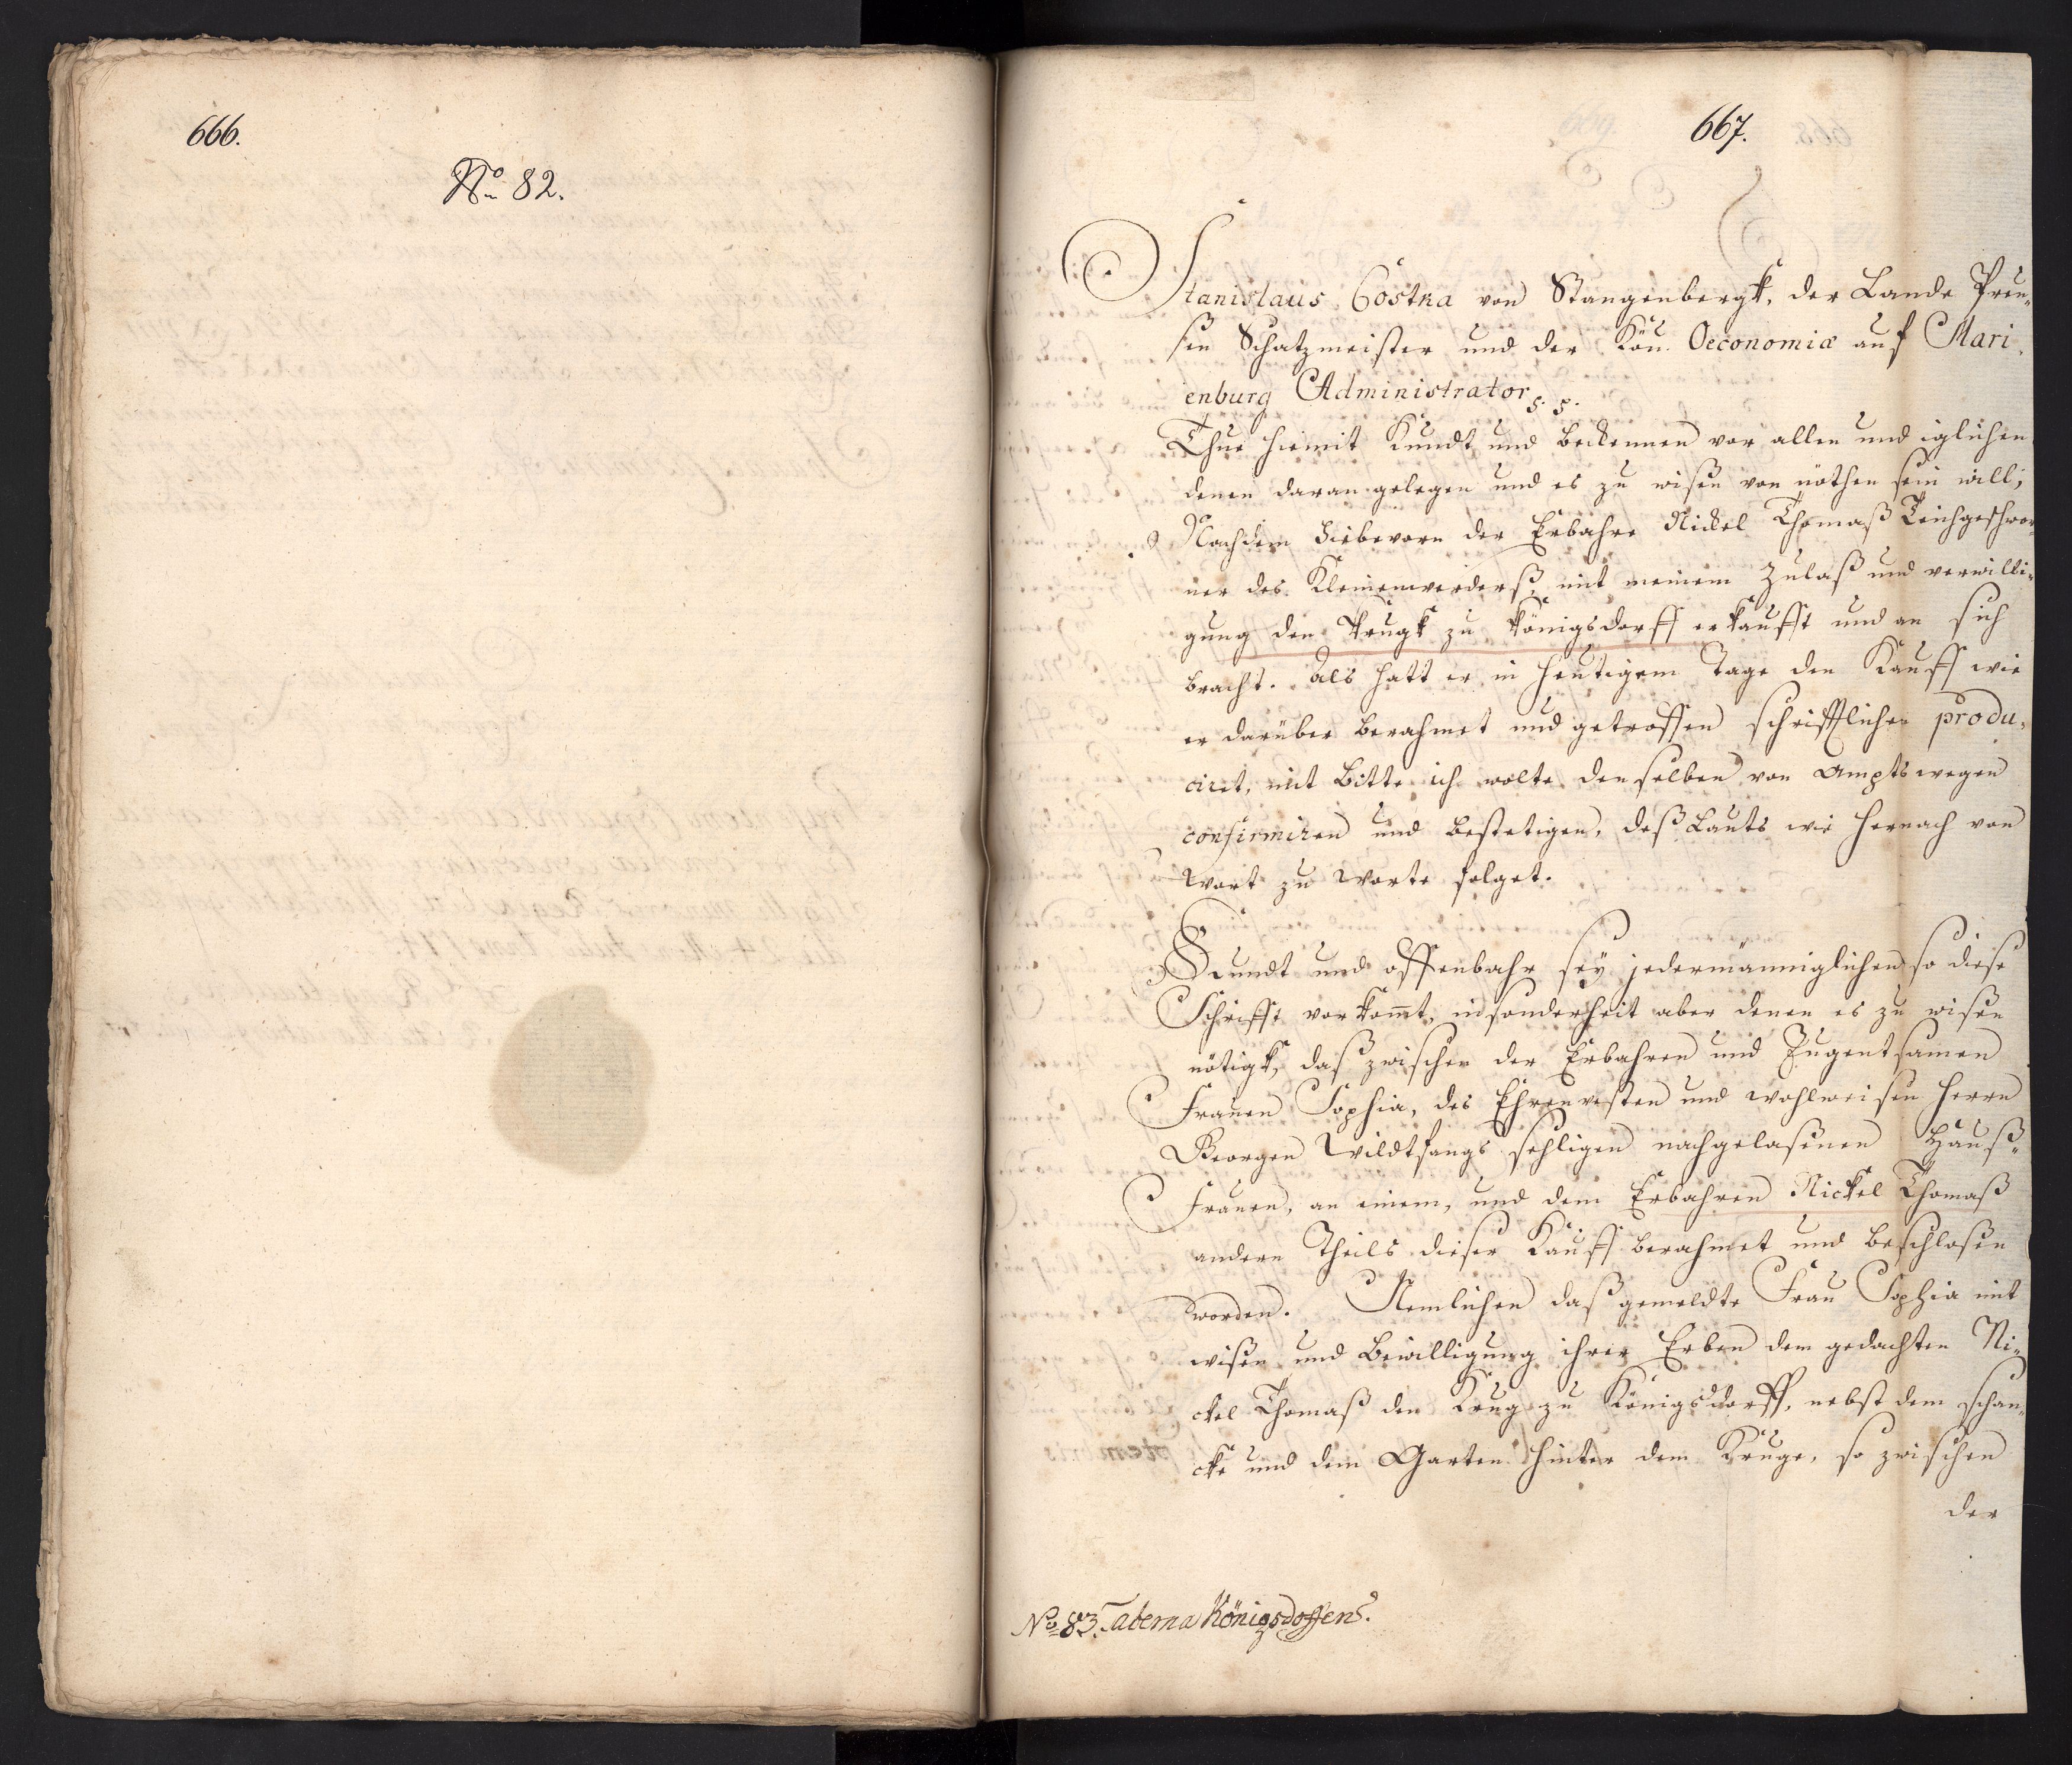 666.
No 82.
667.
Stanislaus Costka von Stangenbergk, der Lande Preu„
ßen Schatzmeister und der Kön. Oeconomiæ auf Mari„
enburg Administrator
Thue hiemit Kundt und bekennen vor allen und iglichen
denen daran gelegen und es zu wißen von nöthen sein will;
Nachdem hiebevorn der Erbahre Nickel Thomaß Teichgeschwor„
ner des Kleinenwerderß mit meinem Zulaß und verwilli„
gung den Krugk zu Königsdorff erkaufft und an sich
bracht. Als hatt er in heutigem Tage den Kauff wie
er darüber berahmet und getroffen schrifftlichen produ„
ciret, mit Bitte ich wolte denselben von Amptswegen
confirmiren und bestetigen, deß Lauts wie hernach von
Wort zu Worte folget.
Kundt und offenbahr sey jedermänniglichen so diese
Schrifft vorkommt, insonderheit aber denen es zu wißen
nötigk, daß zwischen der Erbahren und Tugentsamen
Frauen Sophia, des Ehrenvesten und wohlweisen Herrn
Georgen Wildtfangs sehligen nachgelaßenen Hauß„
Frauen, an einem, und dem Erbahren Nickel Thomaß
andern Theils dieser Kauff berahmet und beschloßen
worden. Nemlichen daß gemeldte Frau Sophia mit
wißen und Bewilligung ihrer Erben dem gedachten Ni„
ckel Thomaß den Krug zu Königsdorff, nebst dem schan„
cke und dem Garten hinter dem Kruge, so zwischen
der
No 83. Taberna Königsdoffens.